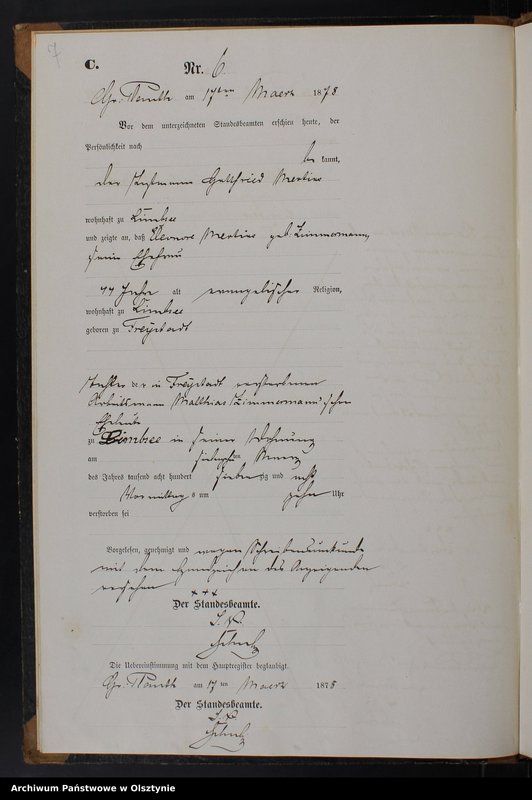 7
C.
Nr. 6.
Gr. Plauth am 17ten Maerz 1878
Vor dem unterzeichneten Standesbeamten erschien heute, der
Persönlichkeit nach
be kannt,
der Gottfried Mertins
wohnhaft zu Limbsee
und zeigte an, daß Eleonore Mertins geb. Zimmermann,
seine Ehefrau
44 Jahre alt evangelischer Religion,
wohnhaft zu Limbsee
geboren zu Freystadt
Tochter der in Freystadt verstorbenen
Arbeitsmann Matthias Zimmermann'schen
Eheleute
zu Limbsee in seiner Wohnung
am ten Maerz
des Jahres tausend acht hundert sieben zig und acht
Vormittag s um zehn Uhr
verstorben sei
Vorgelesen, genehmigt und wegen Schreibensunkunde
mit dem Handzeichen des Anzeigenden
versehen
+++
Der Standesbeamte.
Die Uebereinstimmung mit dem Hauptregister beglaubigt.
Gr. Plauth am 17 ten Maerz 1878
Der Standesbeamte.
Archiwum Państwowe w Olsztynie